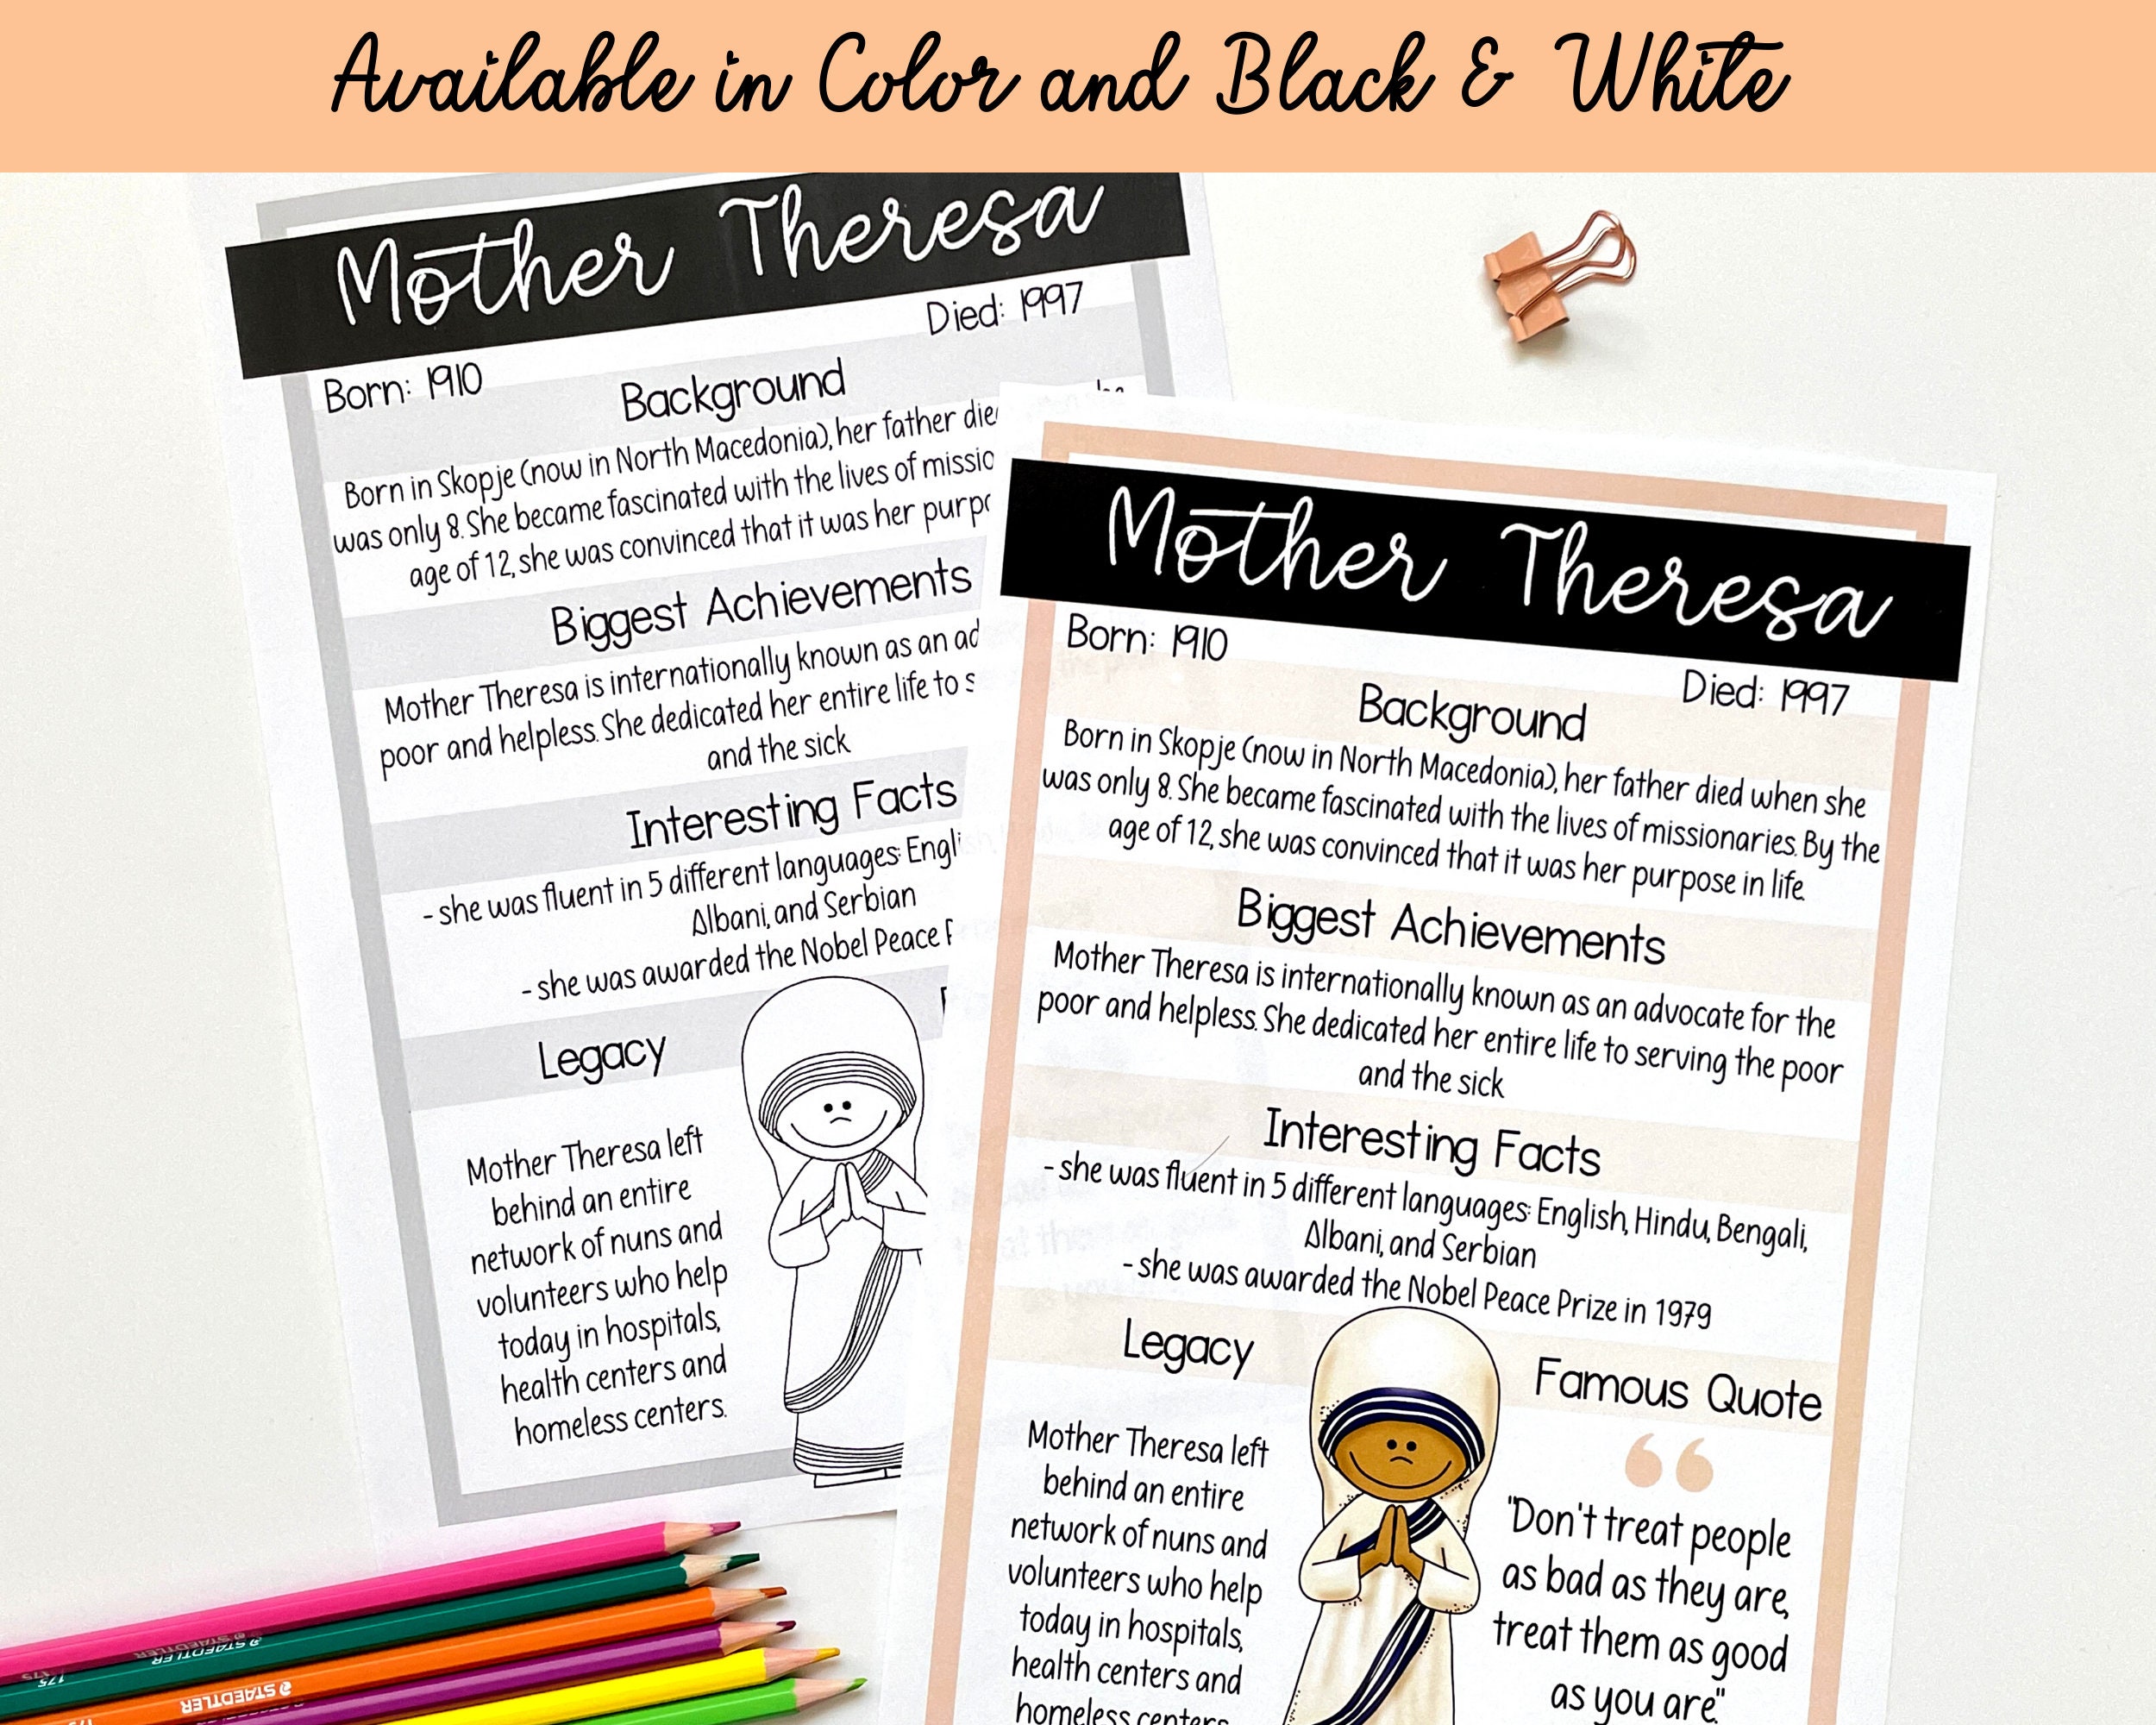 Available in Color and Black & White
Mother Theresa
Born: 1910
Died: 1997
Background
Born in Skopje (now in North Macedonia), her father died
was only 8. She became fascinated with the lives of
age of 12, she was convinced that it was her
Biggest Achievements
Mother Theresa is internationally known as an
poor and helpless. She dedicated her entire life to
and the sick
Interesting Facts
- she was fluent in 5 different languages:
Albani, and Serbian
- she was awarded the Nobel Peace
Legacy
Mother Theresa left
behind an entire
network of nuns and
volunteers who help
today in hospitals,
health centers and
homeless centers.
Mother Theresa
Born: 1910
Died: 1997
Background
Born in Skopje (now in North Macedonia), her father died when she
was only 8. She became fascinated with the lives of missionaries. By the
age of 12, she was convinced that it was her purpose in life.
Biggest Achievements
Mother Theresa is internationally known as an advocate for the
poor and helpless. She dedicated her entire life to serving the poor
and the sick
Interesting Facts
- she was fluent in 5 different languages: English, Hindu, Bengali,
Albani, and Serbian
- she was awarded the Nobel Peace Prize in 1979
Legacy
Mother Theresa left
behind an entire
network of nuns and
volunteers who help
today in hospitals,
health centers and
homeless centers
Famous Quote
“
"Don't treat people
as bad as they are,
treat them as good
as you are."
STAEDTLER
STAEDTLER
STAEDTLER
175